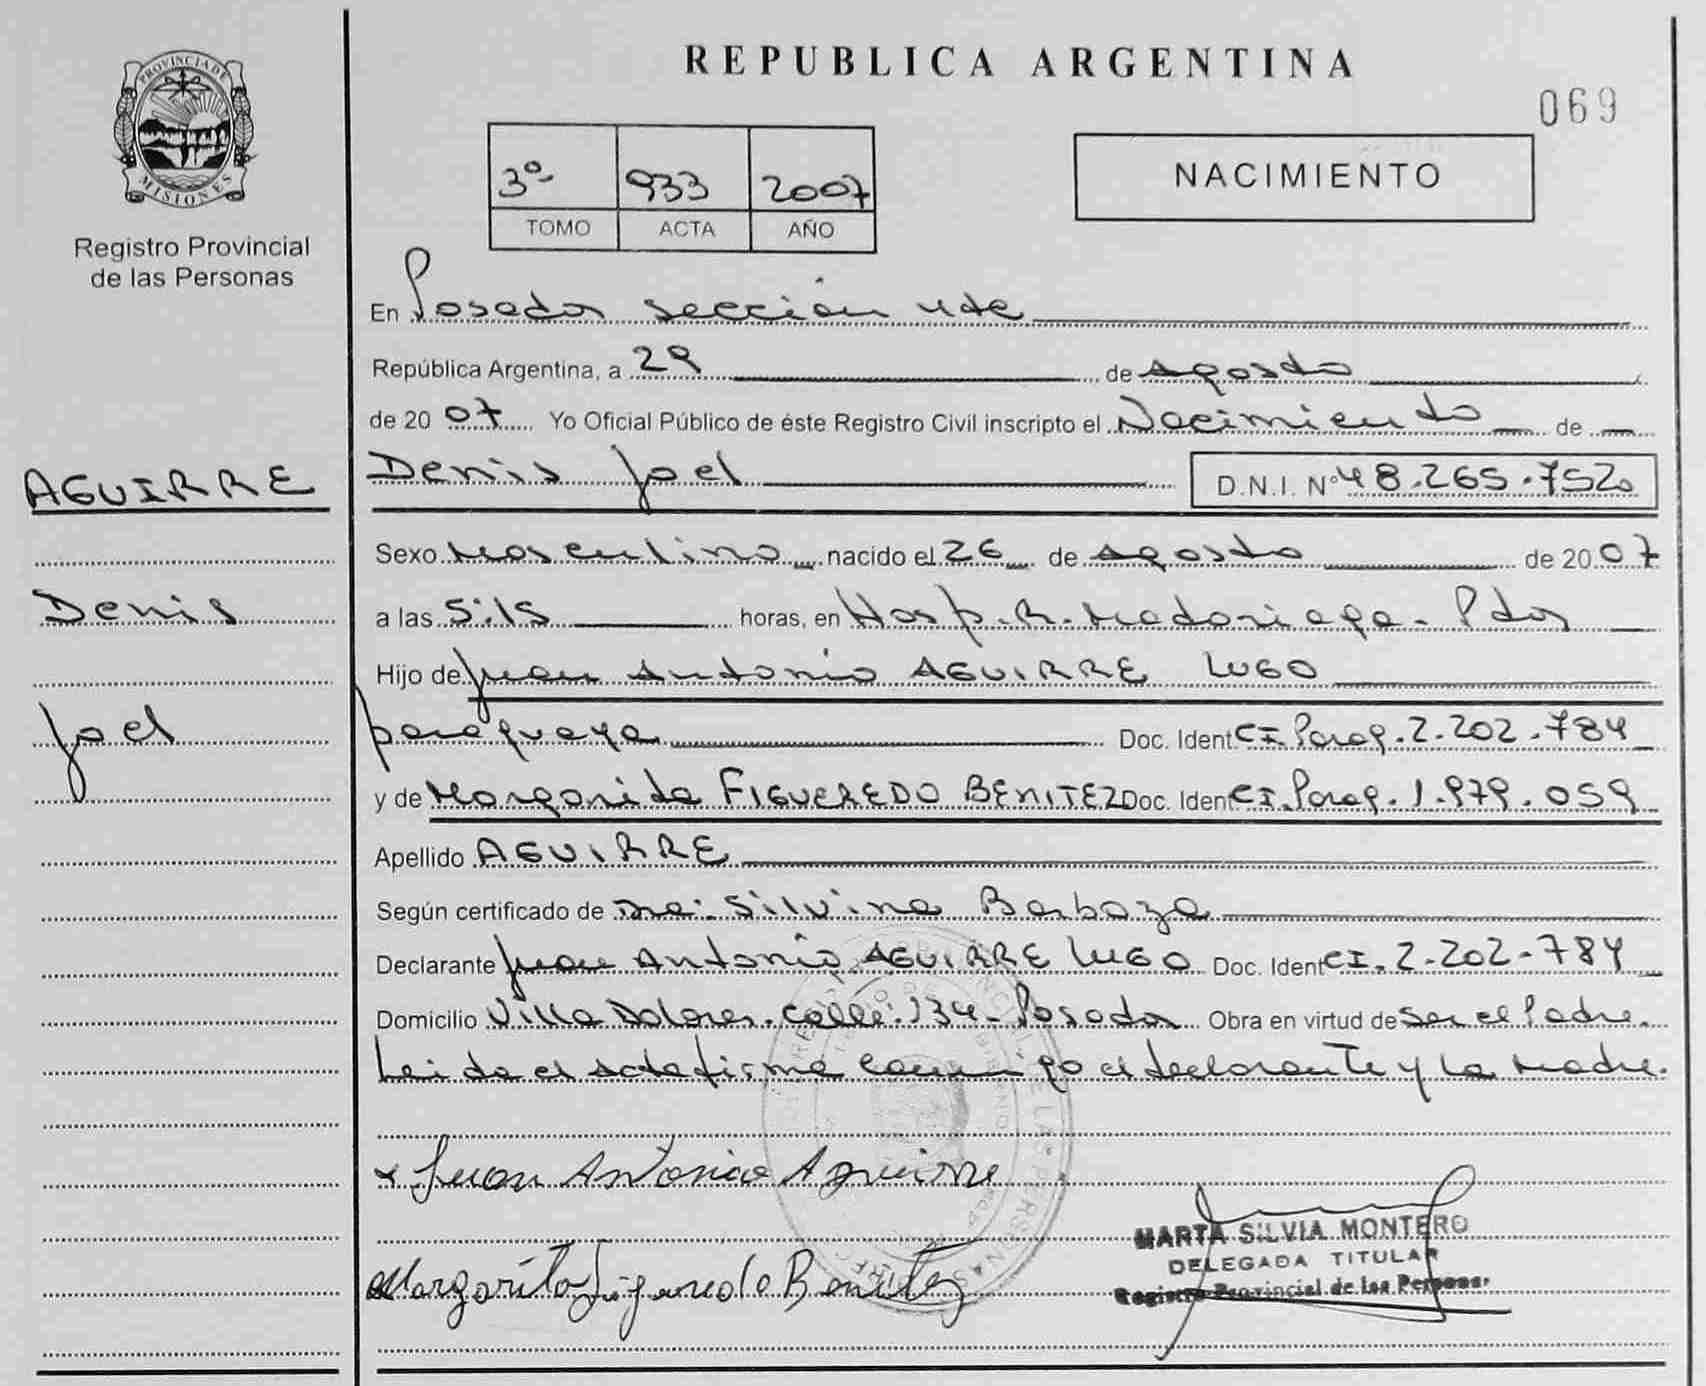 PROVINCIA DE
MISIONES
Registro Provincial
de las Personas
REPUBLICA ARGENTINA
069
3º 933 2007
TOMO ACTA AÑO
NACIMIENTO
En Posadas sección 4ta
República Argentina, a 29 de agosto
de 2007 Yo Oficial Público de éste Registro Civil inscripto el Nacimiento de
AGUIRRE
Denis Joel D.N.I. Nº 48.265.752
Sexo Masculino nacido el 26 de agosto de 2007
Denis
a las 5:15 horas, en Hosp. R. Madariaga - Pdas
Hijo de Juan Antonio AGUIRRE LUGO
Joel
paraguaya Doc. Ident CI. Parag. 2.202.784
y de Margarita FIGUEREDO BENITEZ Doc. Ident CI. Parag. 1.979.059
Apellido AGUIRRE
Según certificado de Silvina Barboza
Declarante Juan Antonio AGUIRRE LUGO Doc. Ident CI. 2.202.784
Domicilio Villa Dolores. calle: 134 - Posadas Obra en virtud de ser el Padre.
Leida el acta firma conmigo el declarante y la madre.
Juan Antonio Aguirre
MARTA SILVIA MONTERO
DELEGADA TITULAR
Registro Provincial de las Personas
Margarita Figueredo Benitez